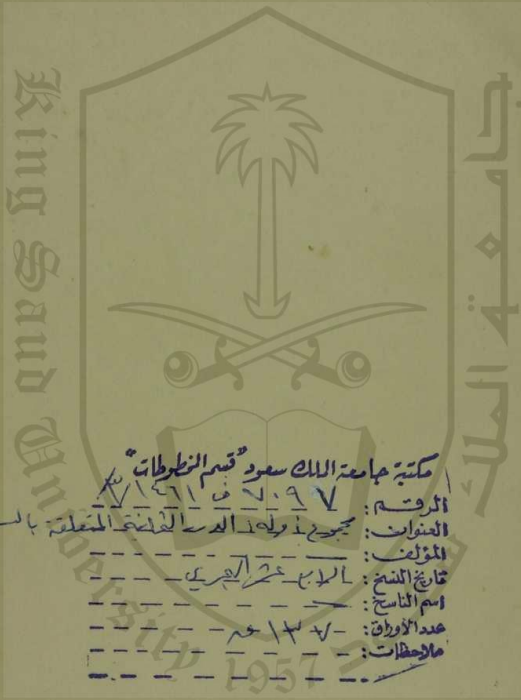 King Saud University
جامعة الملك
1957
مكتبة جامعة الملك سعود "قسم المخطوطات"
الرقم: ٧٠٩٧ ف ١٤٦١/٣
العنوان: مجموع أوله الدرر المتعلقة بالـ
المؤلف:
تاريخ النسخ: الرابع عشر الهجري
اسم الناسخ:
عدد الأوراق: ١٣٧
ملاحظات: